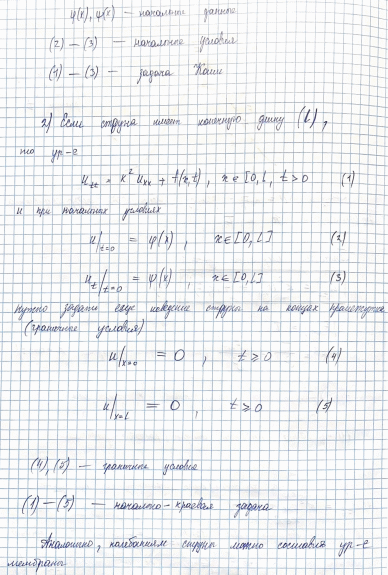 φ(x), ψ(x) — начальные данные
(2) — (3) — начальные условия
(1) — (3) — задача Коши
2) Если струна имеет конечную длину (L),
то ур-е
u_tt = k² u_xx + f(x,t), x ∈ [0, L, t > 0 (1)
и при начальных условиях
u|_t=0 = φ(x), x ∈ [0, L] (2)
u_t|_t=0 = ψ(x), x ∈ [0, L] (3)
нужно задать еще поведение струны на концах промежутка
(граничные условия)
u|_x=0 = 0, t ⩾ 0 (4)
u|_x=L = 0, t ⩾ 0 (5)
(4), (5) — граничные условия
(1) — (5) — начально-краевая задача
Аналогично, колебаниям струны можно составить ур-е
мембраны